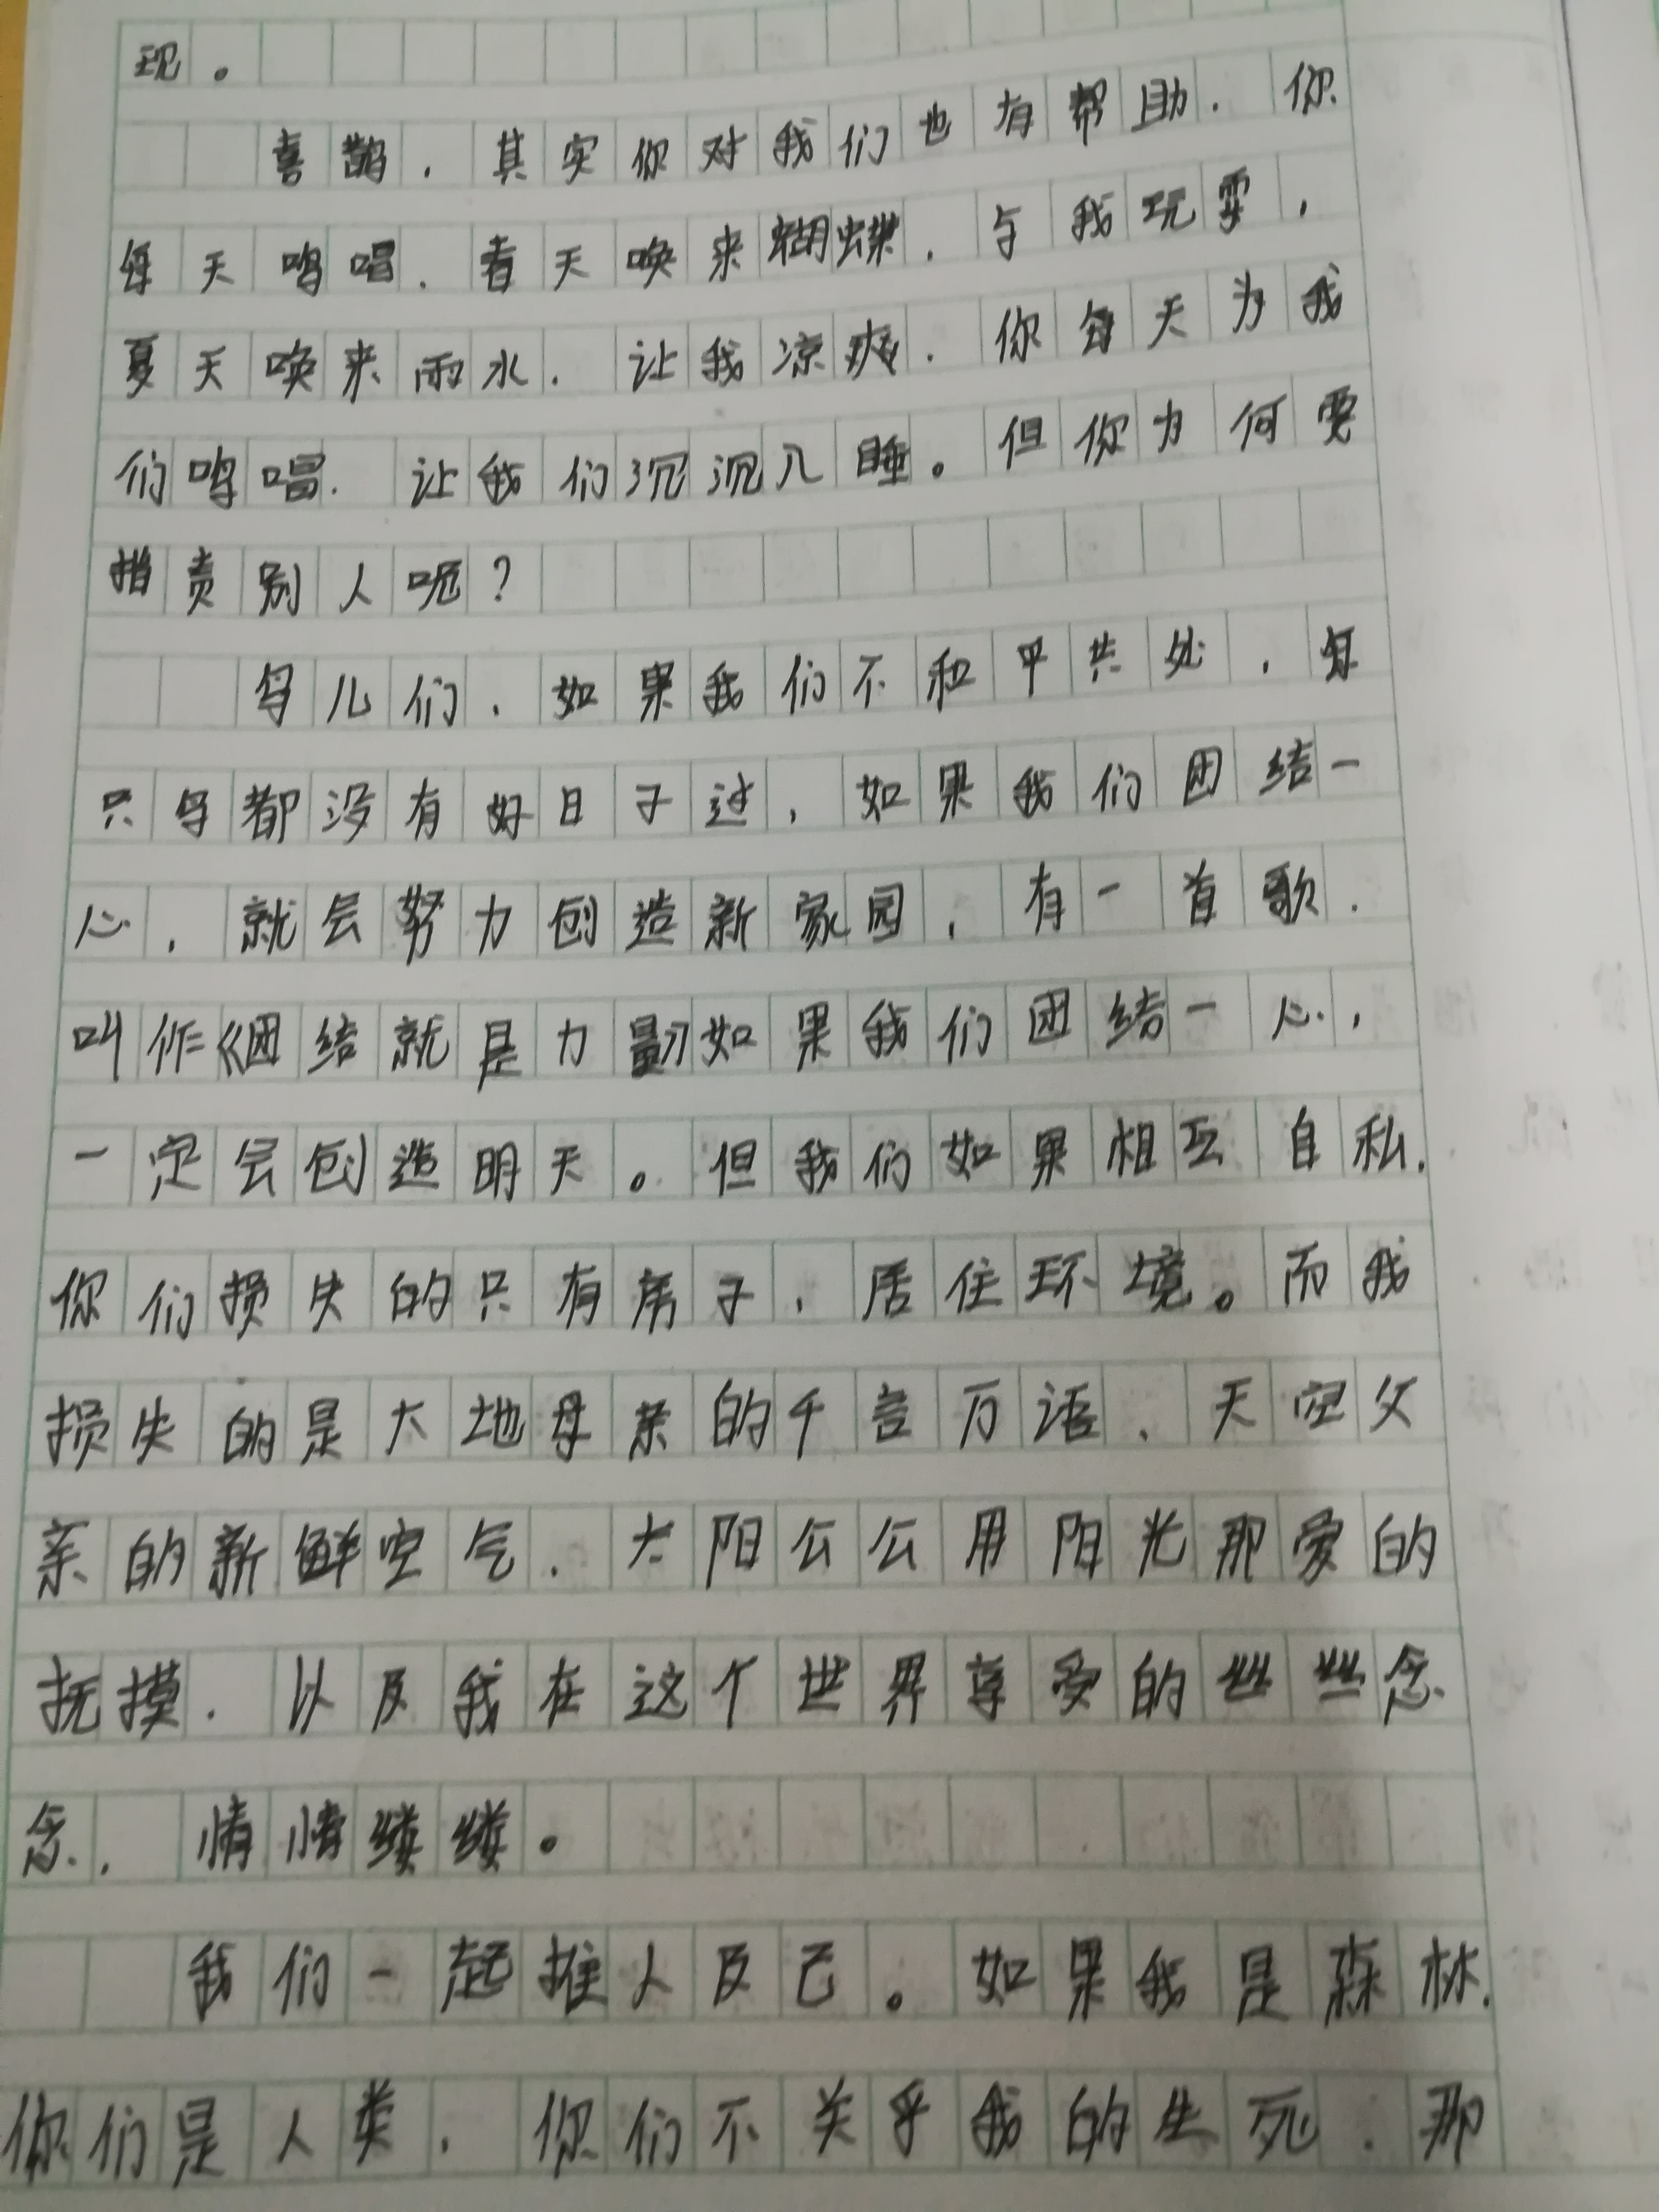 现。
喜鹊，其实你对我们也有帮助，你
每天鸣唱，春天唤来蝴蝶，与我玩耍，
夏天唤来雨水，让我凉爽，你每天为我
们鸣唱，让我们沉沉入睡。但你为何要
指责别人呢？
鸟儿们，如果我们不和平共处，每
只鸟都没有好日子过，如果我们团结一
心，就会努力创造新家园，有一首歌，
叫作《团结就是力量》如果我们团结一心，
一定会创造明天。但我们如果相互自私，
你们损失的只有房子，居住环境。而我
损失的是大地母亲的千言万语、天空父
亲的新鲜空气，太阳公公用阳光那爱的
抚摸，以及我在这个世界享受的丝丝念
念，情情缕缕。
我们一起推人及己。如果我是森林，
你们是人类，你们不关乎我的生死，那